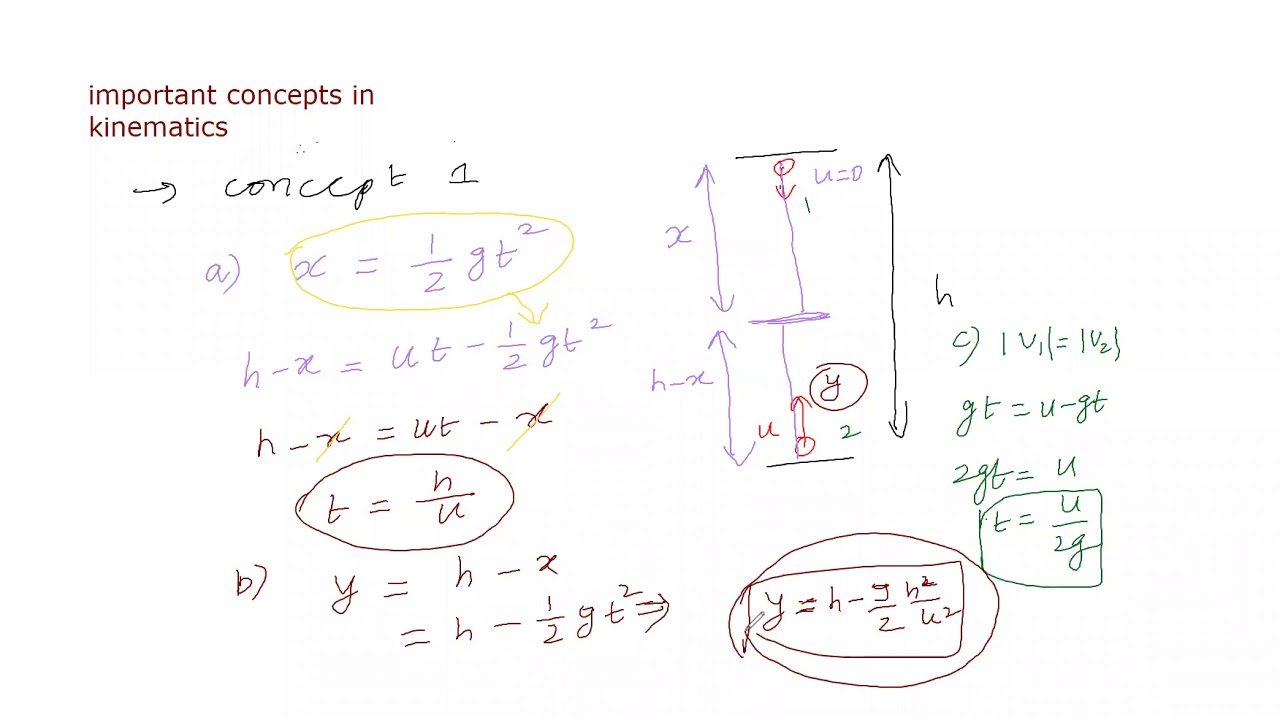 important concepts in
kinematics
→ concept 1
a) x = 1/2 gt²
h-x = ut - 1/2 gt²
h-x = ut - x
t = h/u
b) y = h - x
= h - 1/2 gt² ⇒
y = h - g/2 h²/u²
u=0
1
x
h
h-x
y
u
2
c) |V₁| = |V₂|
gt = u-gt
2gt = u
t = u/2g